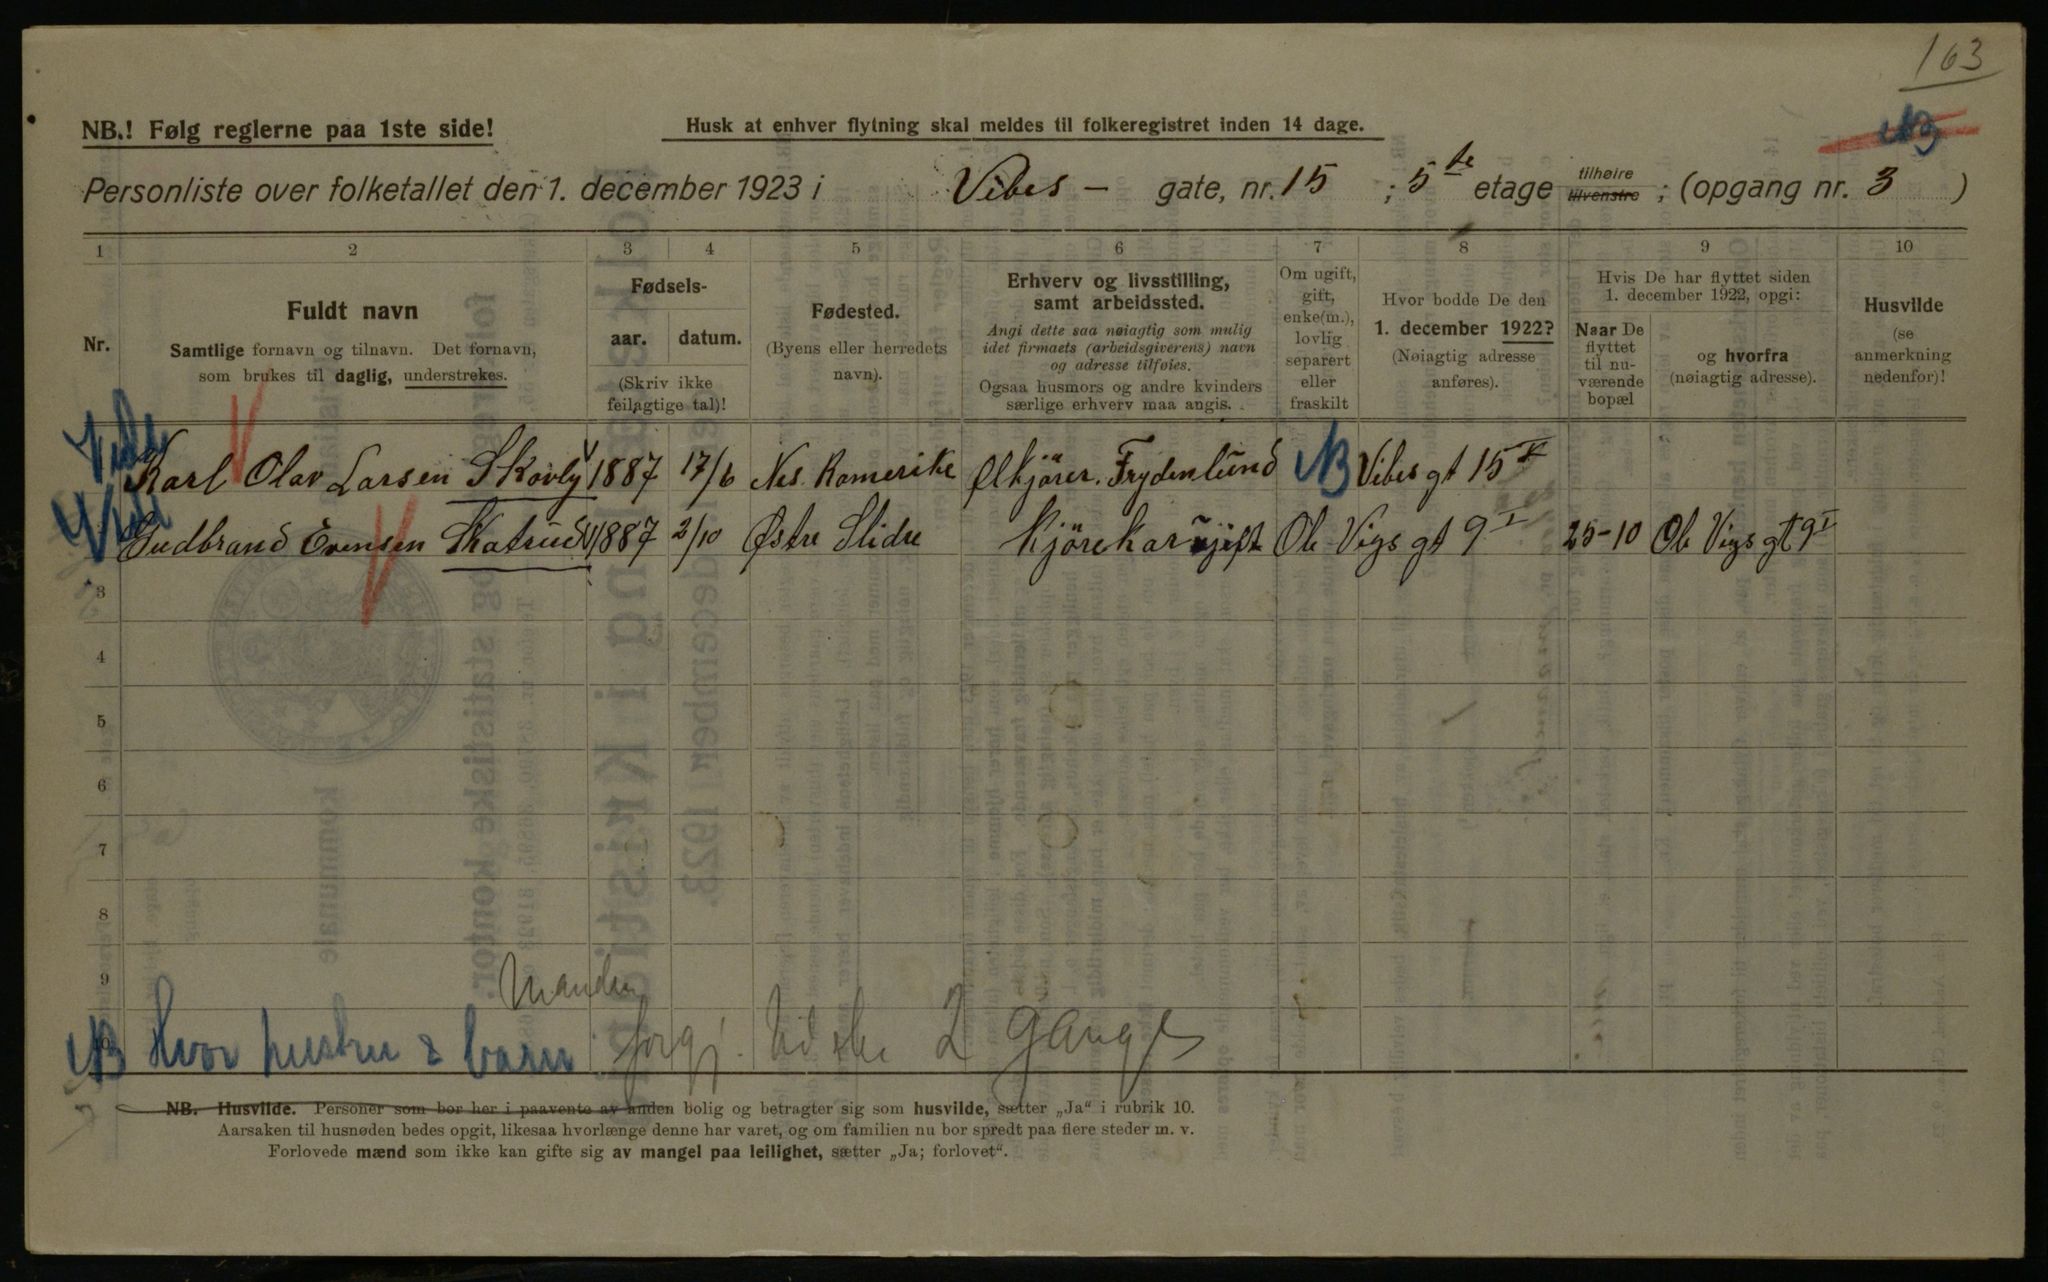 163
NB.! Følg reglerne paa 1ste side!
Husk at enhver flytning skal meldes til folkeregistret inden 14 dage.
NB
Personliste over folketallet den 1. december 1923 i Vibes - gate, nr. 15 ; 5te etage tilhøire tilvenstre ; (opgang nr. 3 )
1 2 3 4 5 6 7 8 9 10
Nr.
Fuldt navn
Samtlige fornavn og tilnavn. Det fornavn,
som brukes til daglig, understrekes.
Fødsels-
aar. datum.
(Skriv ikke
feilagtige tal)!
Fødested.
(Byens eller herredets
navn).
Erhverv og livsstilling,
samt arbeidssted.
Angi dette saa nøiagtig som mulig
idet firmaets (arbeidsgiverens) navn
og adresse tilføies.
Ogsaa husmors og andre kvinders
særlige erhverv maa angis.
Om ugift,
gift,
enke(m.),
lovlig
separert
eller
fraskilt
Hvor bodde De den
1. december 1922?
(Nøiagtig adresse
anføres).
Hvis De har flyttet siden
1. december 1922, opgi:
Naar De
flyttet
til nu-
værende
bopæl
og hvorfra
(nøiagtig adresse).
Husvilde
(se
anmerkning
nedenfor)!
Karl Olav Larsen Skovly 1887 17/6 Nes. Romerike Ølkjører. Frydenlund NB Vibes gt 15 V
Gudbrand Evensen Skatrud 1887 2/10 Østre Slidre Kjørekar ugift Ole Vigs gt 9 I 25-10 Ole Vigs gt 9 I
3
4
5
6
7
8
9
Manden
NB Hvor hustru & barn forgj. 2 gange
NB. Husvilde. Personer som bor her i paavente av anden bolig og betragter sig som husvilde, sætter „Ja“ i rubrik 10.
Aarsaken til husnøden bedes opgit, likesaa hvorlænge denne har varet, og om familien nu bor spredt paa flere steder m. v.
Forlovede mænd som ikke kan gifte sig av mangel paa leilighet, sætter „Ja; forlovet“.